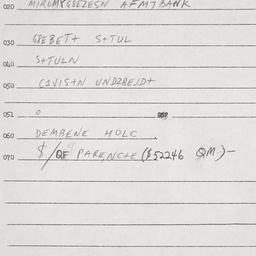 020 MIROMYGSEZESN AFMT BANK
030 GBEBET+ S+TUL
040 S+TULN
050 C1VIS+N UNDZBEJD+
051 0 052
060 DEMBENE HOLC .
070 $/QF PARENC+E ($52246 QM.)-